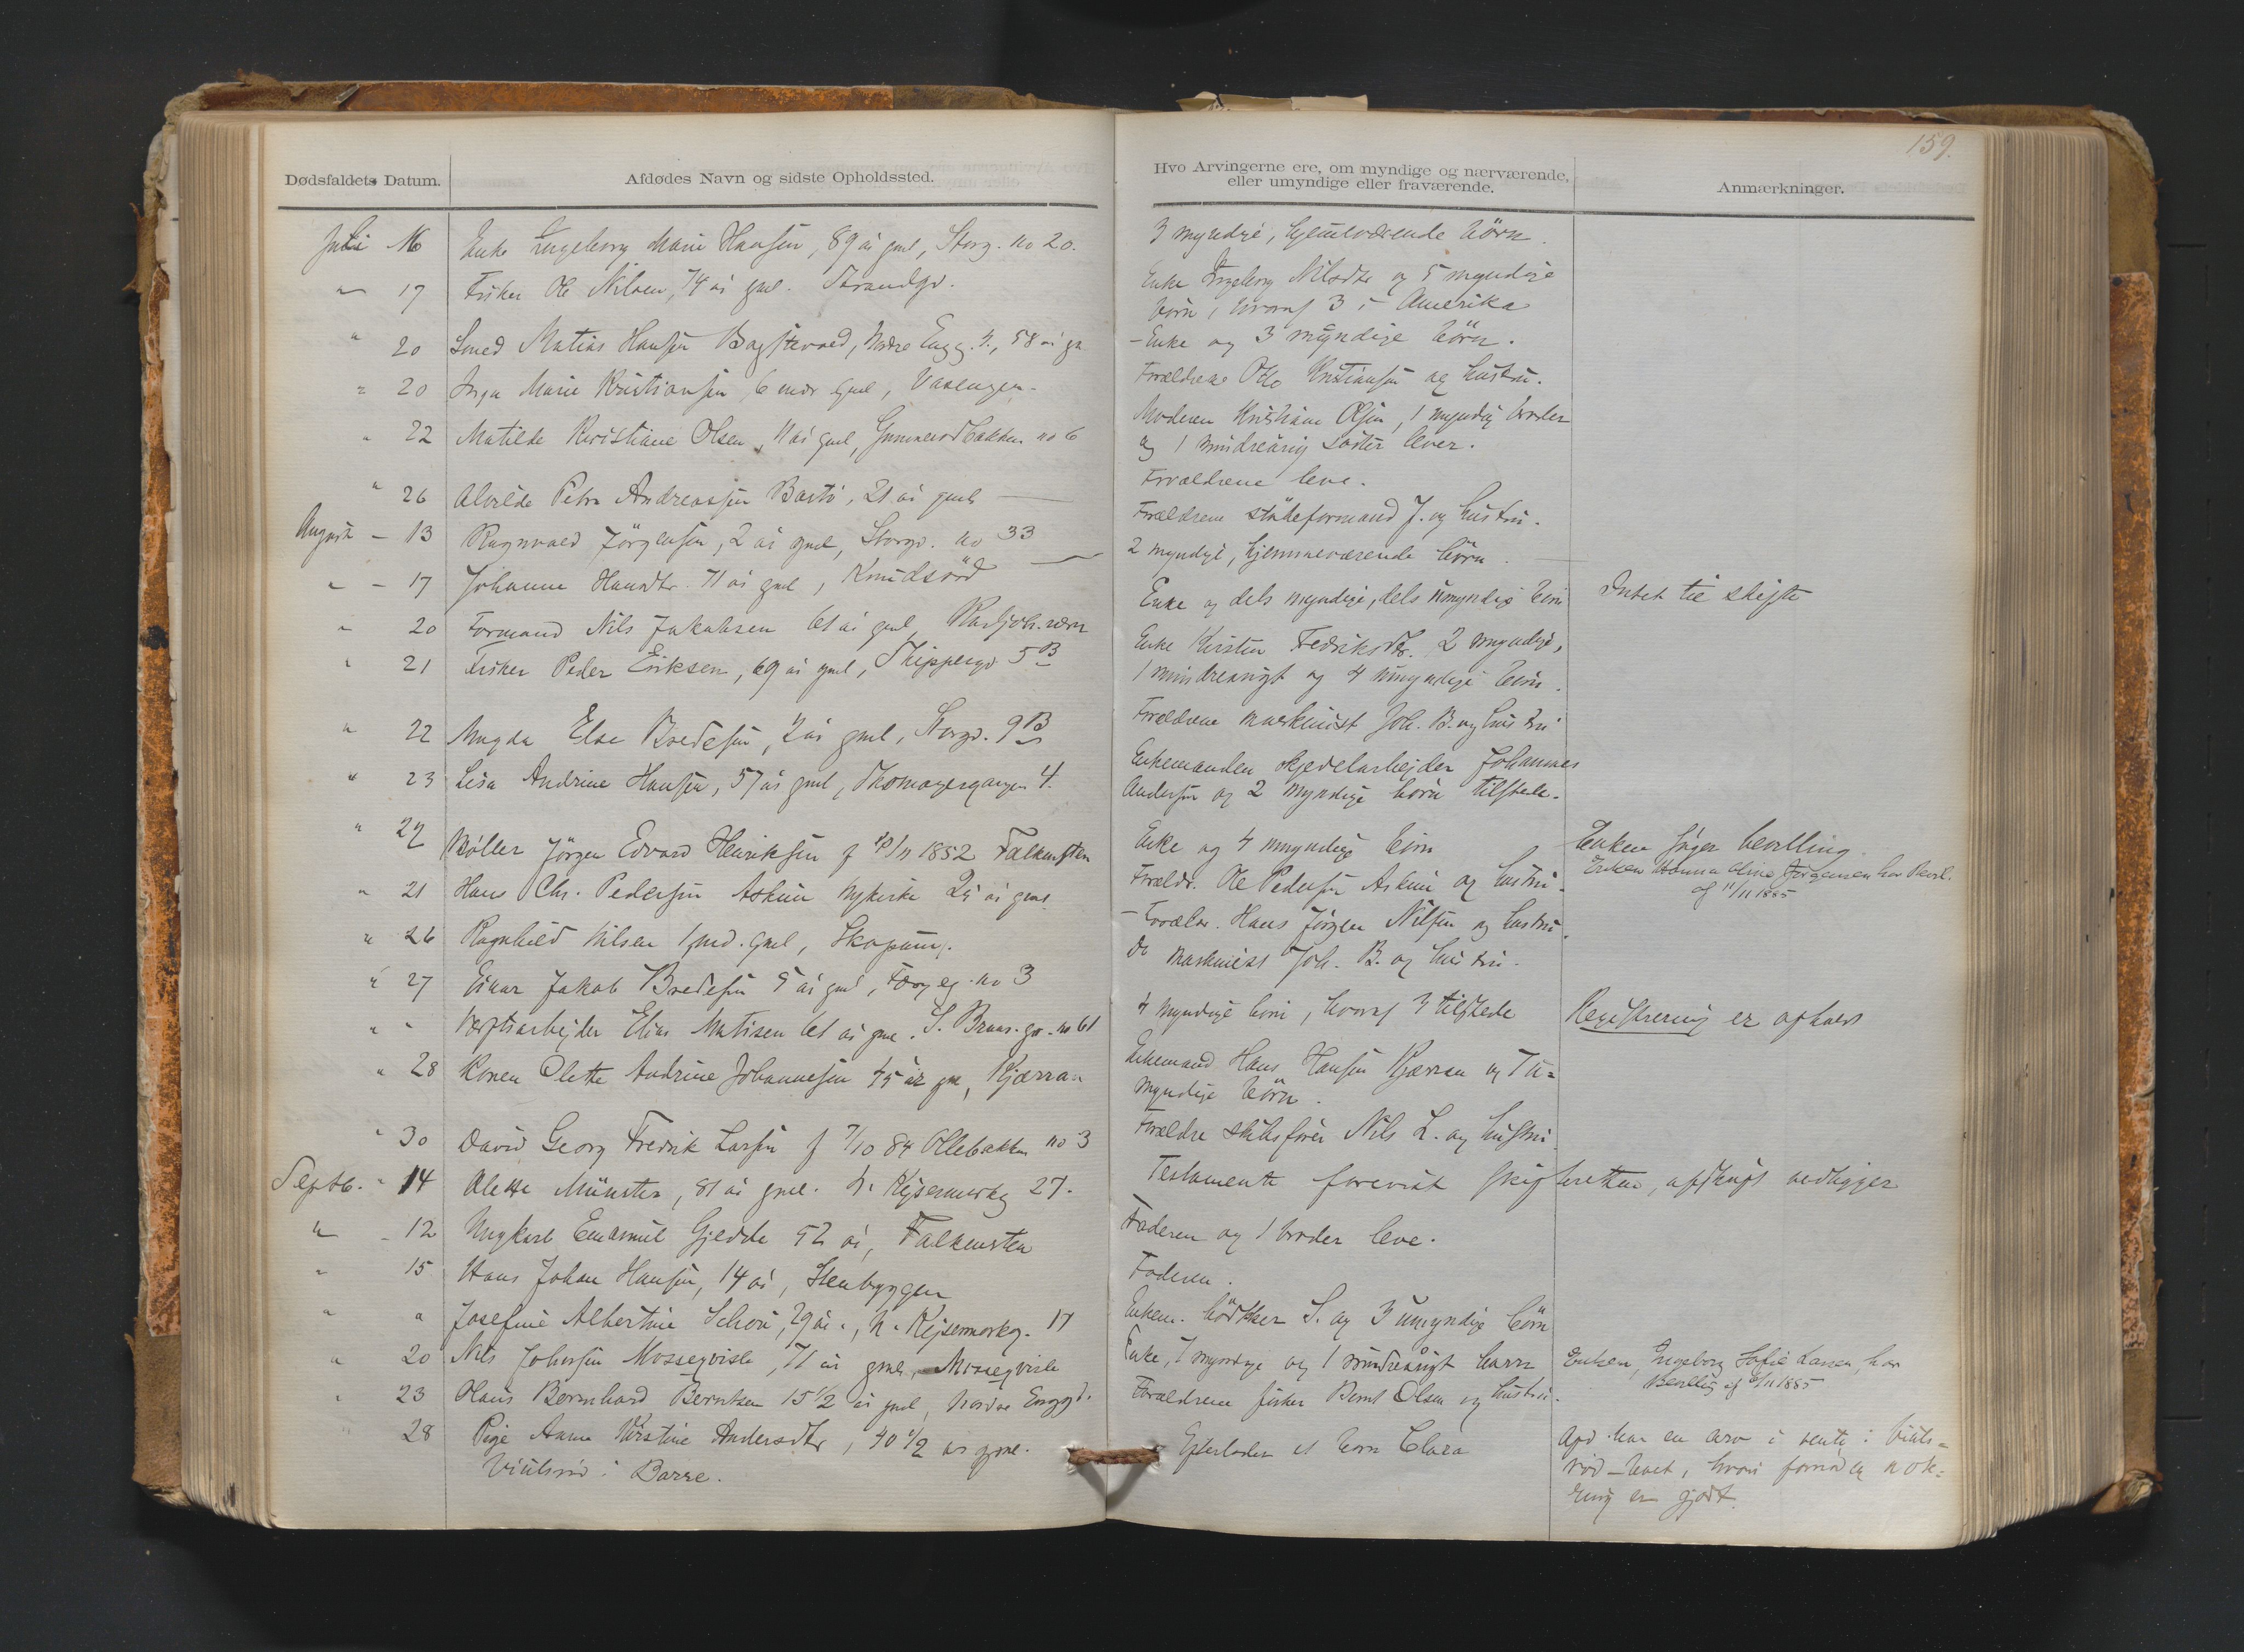 159.
Dødsfaldets Datum.
Afdødes Navn og sidste Opholdssted.
Hvo Arvingerne ere, om myndige og nærværende,
eller umyndige eller fraværende.
Anmærkninger.
Juli 16 Enke Ingeborg Marie Hansen, 89 år gml, Storg. no 20. 3 myndige, hjemmeværende börn.
" 17 Fisker Ole Nilsen, 74 år gml. Strandgd. Enke Ingeborg Nilsdtr og 5 myndige
börn, hvoraf 3 i Amerika
" 20 Smed Matias Hansen Bagstevold, Nedre Engg. 4., 58 år gl - Enke og 3 myndige börn.
" 20 Inga Marie Kristiansen 6 mdr gml, Vasengen. Forældrene Otto Kristiansen og hustru.
" 22 Matilde Kristiane Olsen, 11 år gml, Gunnerödbakken no 6 Moderen Kristiane Olsen, 1 myndig broder
og 1 mindreårig söster lever.
" 26 Alvilde Petra Andreassen Bastö, 21 år gml Forældrene leve.
August - 13 Ragnvald Jörgensen, 2 år gml, Storgd. no 33 Forældrene formand J. og hustru.
" - 17 Johanne Hansdtr. 71 år gml, Knudsröd 2 myndige, hjemmeværende börn.
" 20 Formand Nils Jakobsen 61 år gml, Karljoh.værn Enke og dels myndige, dels umyndige börn Intet til skifte
" 21 Fisker Peder Eriksen, 69 år gml, Skippergd 5 B Enke Kirsten Fedriksdtr. 2 myndige,
1 mindreårigt og 4 umyndige börn.
" 22 Magda Else Bredesen, 2 år gml, Storgd. 9 B Forældrene maskinist Joh. B. og hustru
" 23 Lisa Andrine Hansen, 57 år gml, Thomagergangen 4. Enkemanden kjedelarbejder Johannes
Andersen og 2 myndige börn tilstede.
" 27 Möller Jörgen Edvard Henriksen f 20/11 1852 Falkensten Enke og 4 umyndige börn Enken söger bevilling.
Enken Hanna Oline Jörgensen har Bevil.
af 11/11 1885
" 21 Hans Chr. Pedersen Askim Nykirke år gml. Forældr. Ole Pedersen Askim og hustru.
" 26 Ragnhild Nilsen 1 md. gml, Skopum. - Forældr. Hans Jörgen Nilsen og hustru.
" 27 Einar Jakob Bredesen 5 år gml, no 3 Do maskinist Joh. B. og hustru.
" " Værftsarbejder Elias Matisen 61 år gml. S. no 61 4 myndige börn, hvoraf 3 tilstede Registrering er afholdt
" 28 Konen Olette Andrine Johannesen 45 år gl, Kjærran Enkemand Hans Hansen Kjærran og 7 u=
myndige börn.
" 30 David Georg Fredrik Larsen f 7/10 84 Ollebakken no 3 Forældre skibsförer Nils L. og hustru.
Septb. " 14 Olette Münster, 81 år gml. N. Kejsermarkg 27. Testamente forevist skifteretten, afskrift vedligger
" - 12 Ungkarl Emanuel Gjedde 52 år, Falkensten Faderen og 1 broder leve.
" 15 Hans Johan Hansen, 14 år, Stenbyggen Faderen.
" " Josefine Albertine Schou, 29 år, N. Kejsermarkg. 17 Enkem. bödkker S. og 3 umyndige börn
" 20 Nils Johnsen Mosseqvisle, 71 år gml, Mosseqvisle Enke, 7 myndige og 1 mindreårigt barn Enken, Ingeborg Sofie Larsen, har
Bevillig af /11 1885
" 23 Olaus Bernhard Berntsen 15 1/2 år gml, Nordre Enggd. Forældrene fisker Bernt Olsen og hustru.
28 Pige Anna Kirstine Andersdtr, 40 1/2 år gml. Efterlader et barn Clara Afd. har en arv i vente i Viuls=
Viulsröd i Borre. röd-boet, hvori fornöden nok=
ering er gjort.